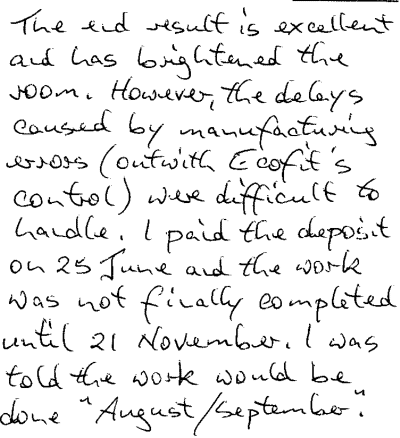 The end result is excellent
and has brightened the
room. However, the delays
caused by manufacturing
errors (outwith Ecofit's
control) were difficult to
handle. I paid the deposit
on 25 June and the work
was not finally completed
until 21 November. I was
told the work would be
done "August/September".